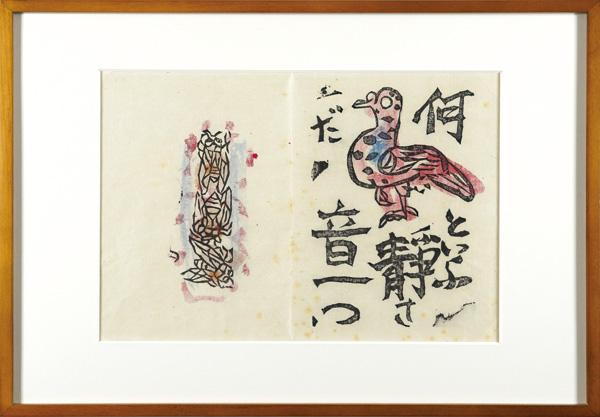 何
といふ
靜さ
だ
音一つ